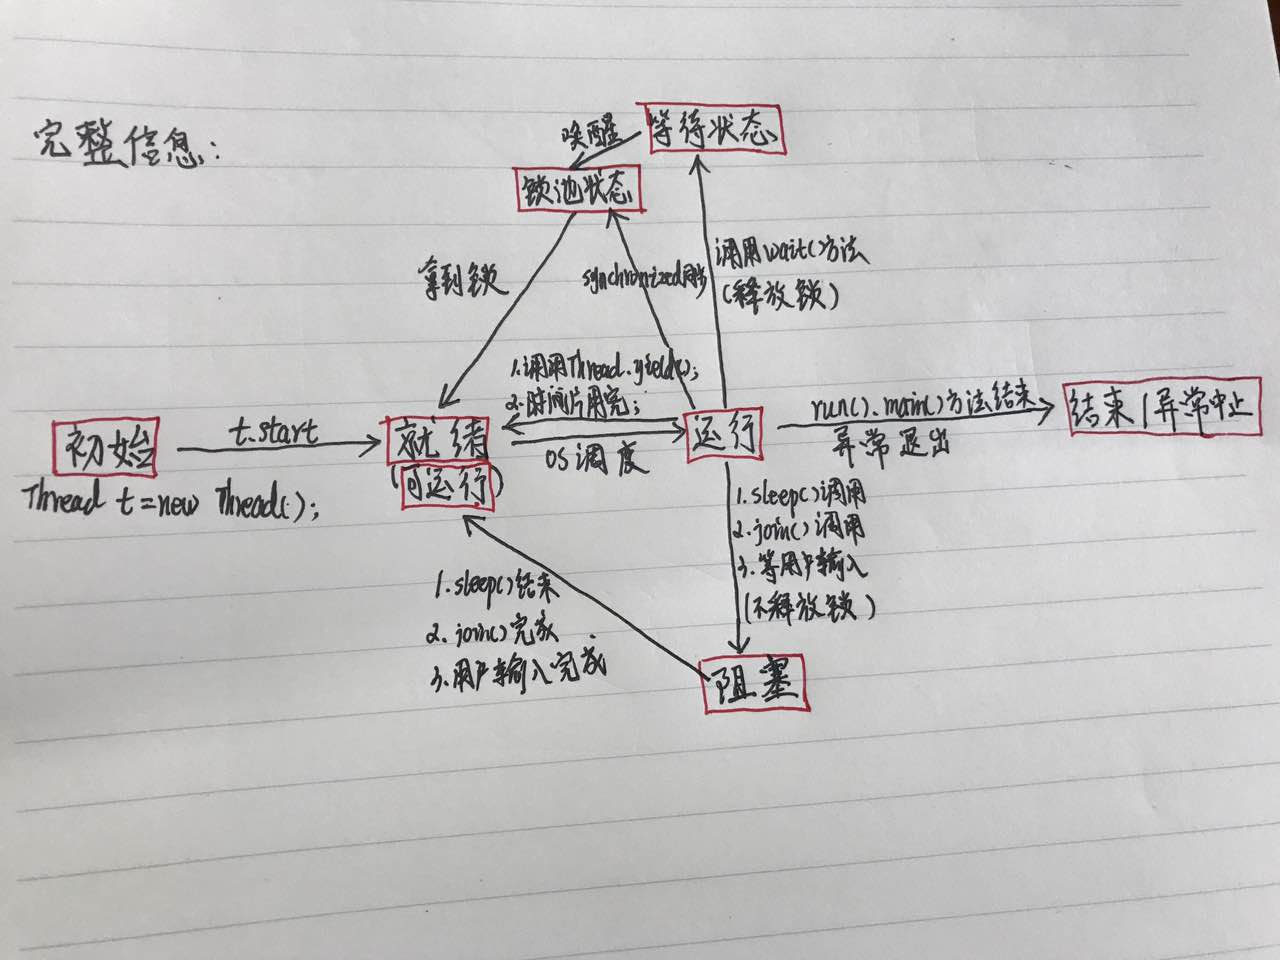 完整信息:
等待状态
唤醒
锁池状态
拿到锁
synchronized同步
调用wait()方法
(释放锁)
1.调用Thread.yield();
2.时间片用完;
初始
t.start
就绪
(可运行)
OS调度
运行
run().main()方法结束
异常退出
结束/异常中止
Thread t=new Thread();
1.sleep()调用
2.join()调用
3.等用户输入
(不释放锁)
1.sleep()结束
2.join()完成
3.用户输入完成
阻塞